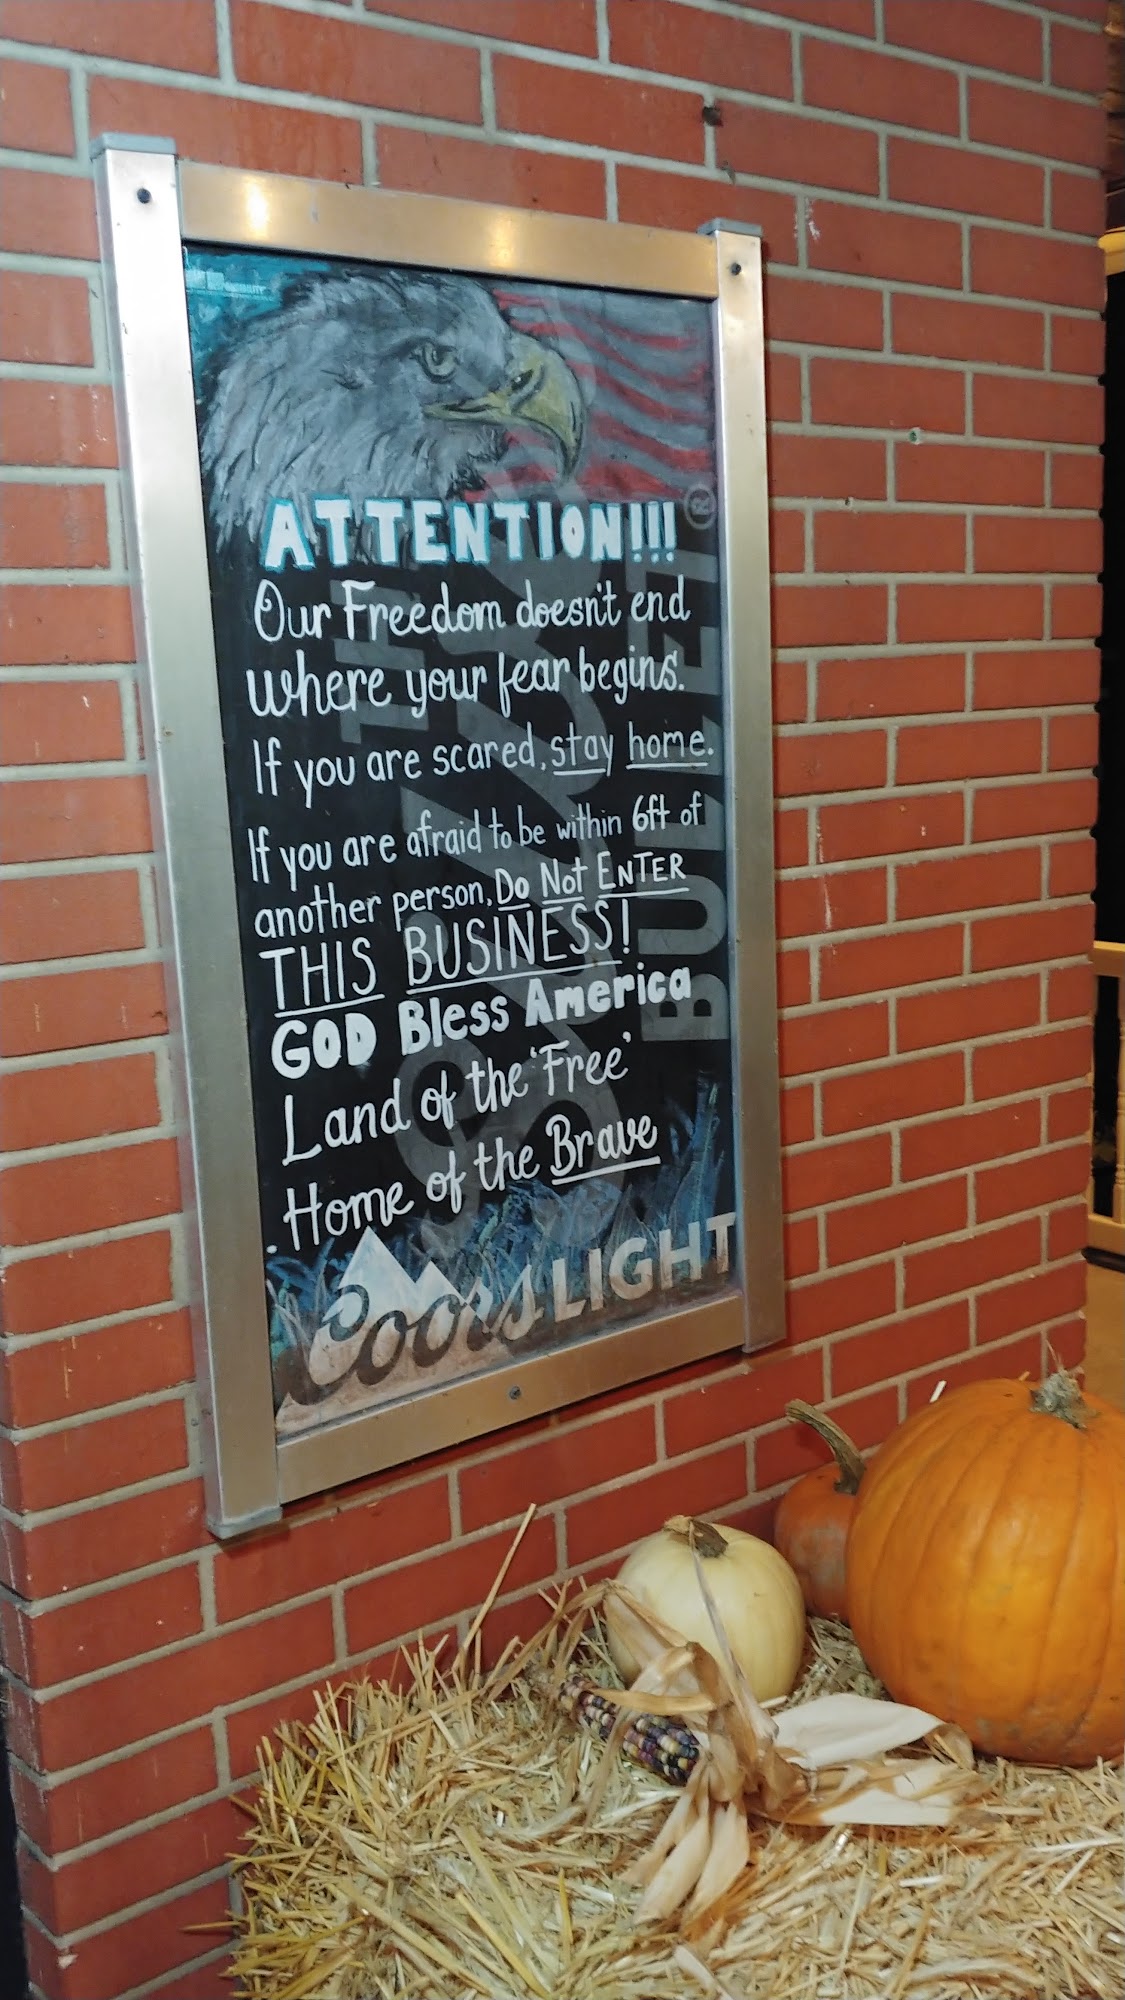 ATTENTION!!!
Our Freedom doesn't end
where your fear begins.
If you are scared, stay home.
If you are afraid to be within 6ft of
another person, Do Not ENTER
THIS BUSINESS!
GOD Bless America
Land of the 'Free'
Home of the Brave
Coors LIGHT
THE
Silver
BULLET